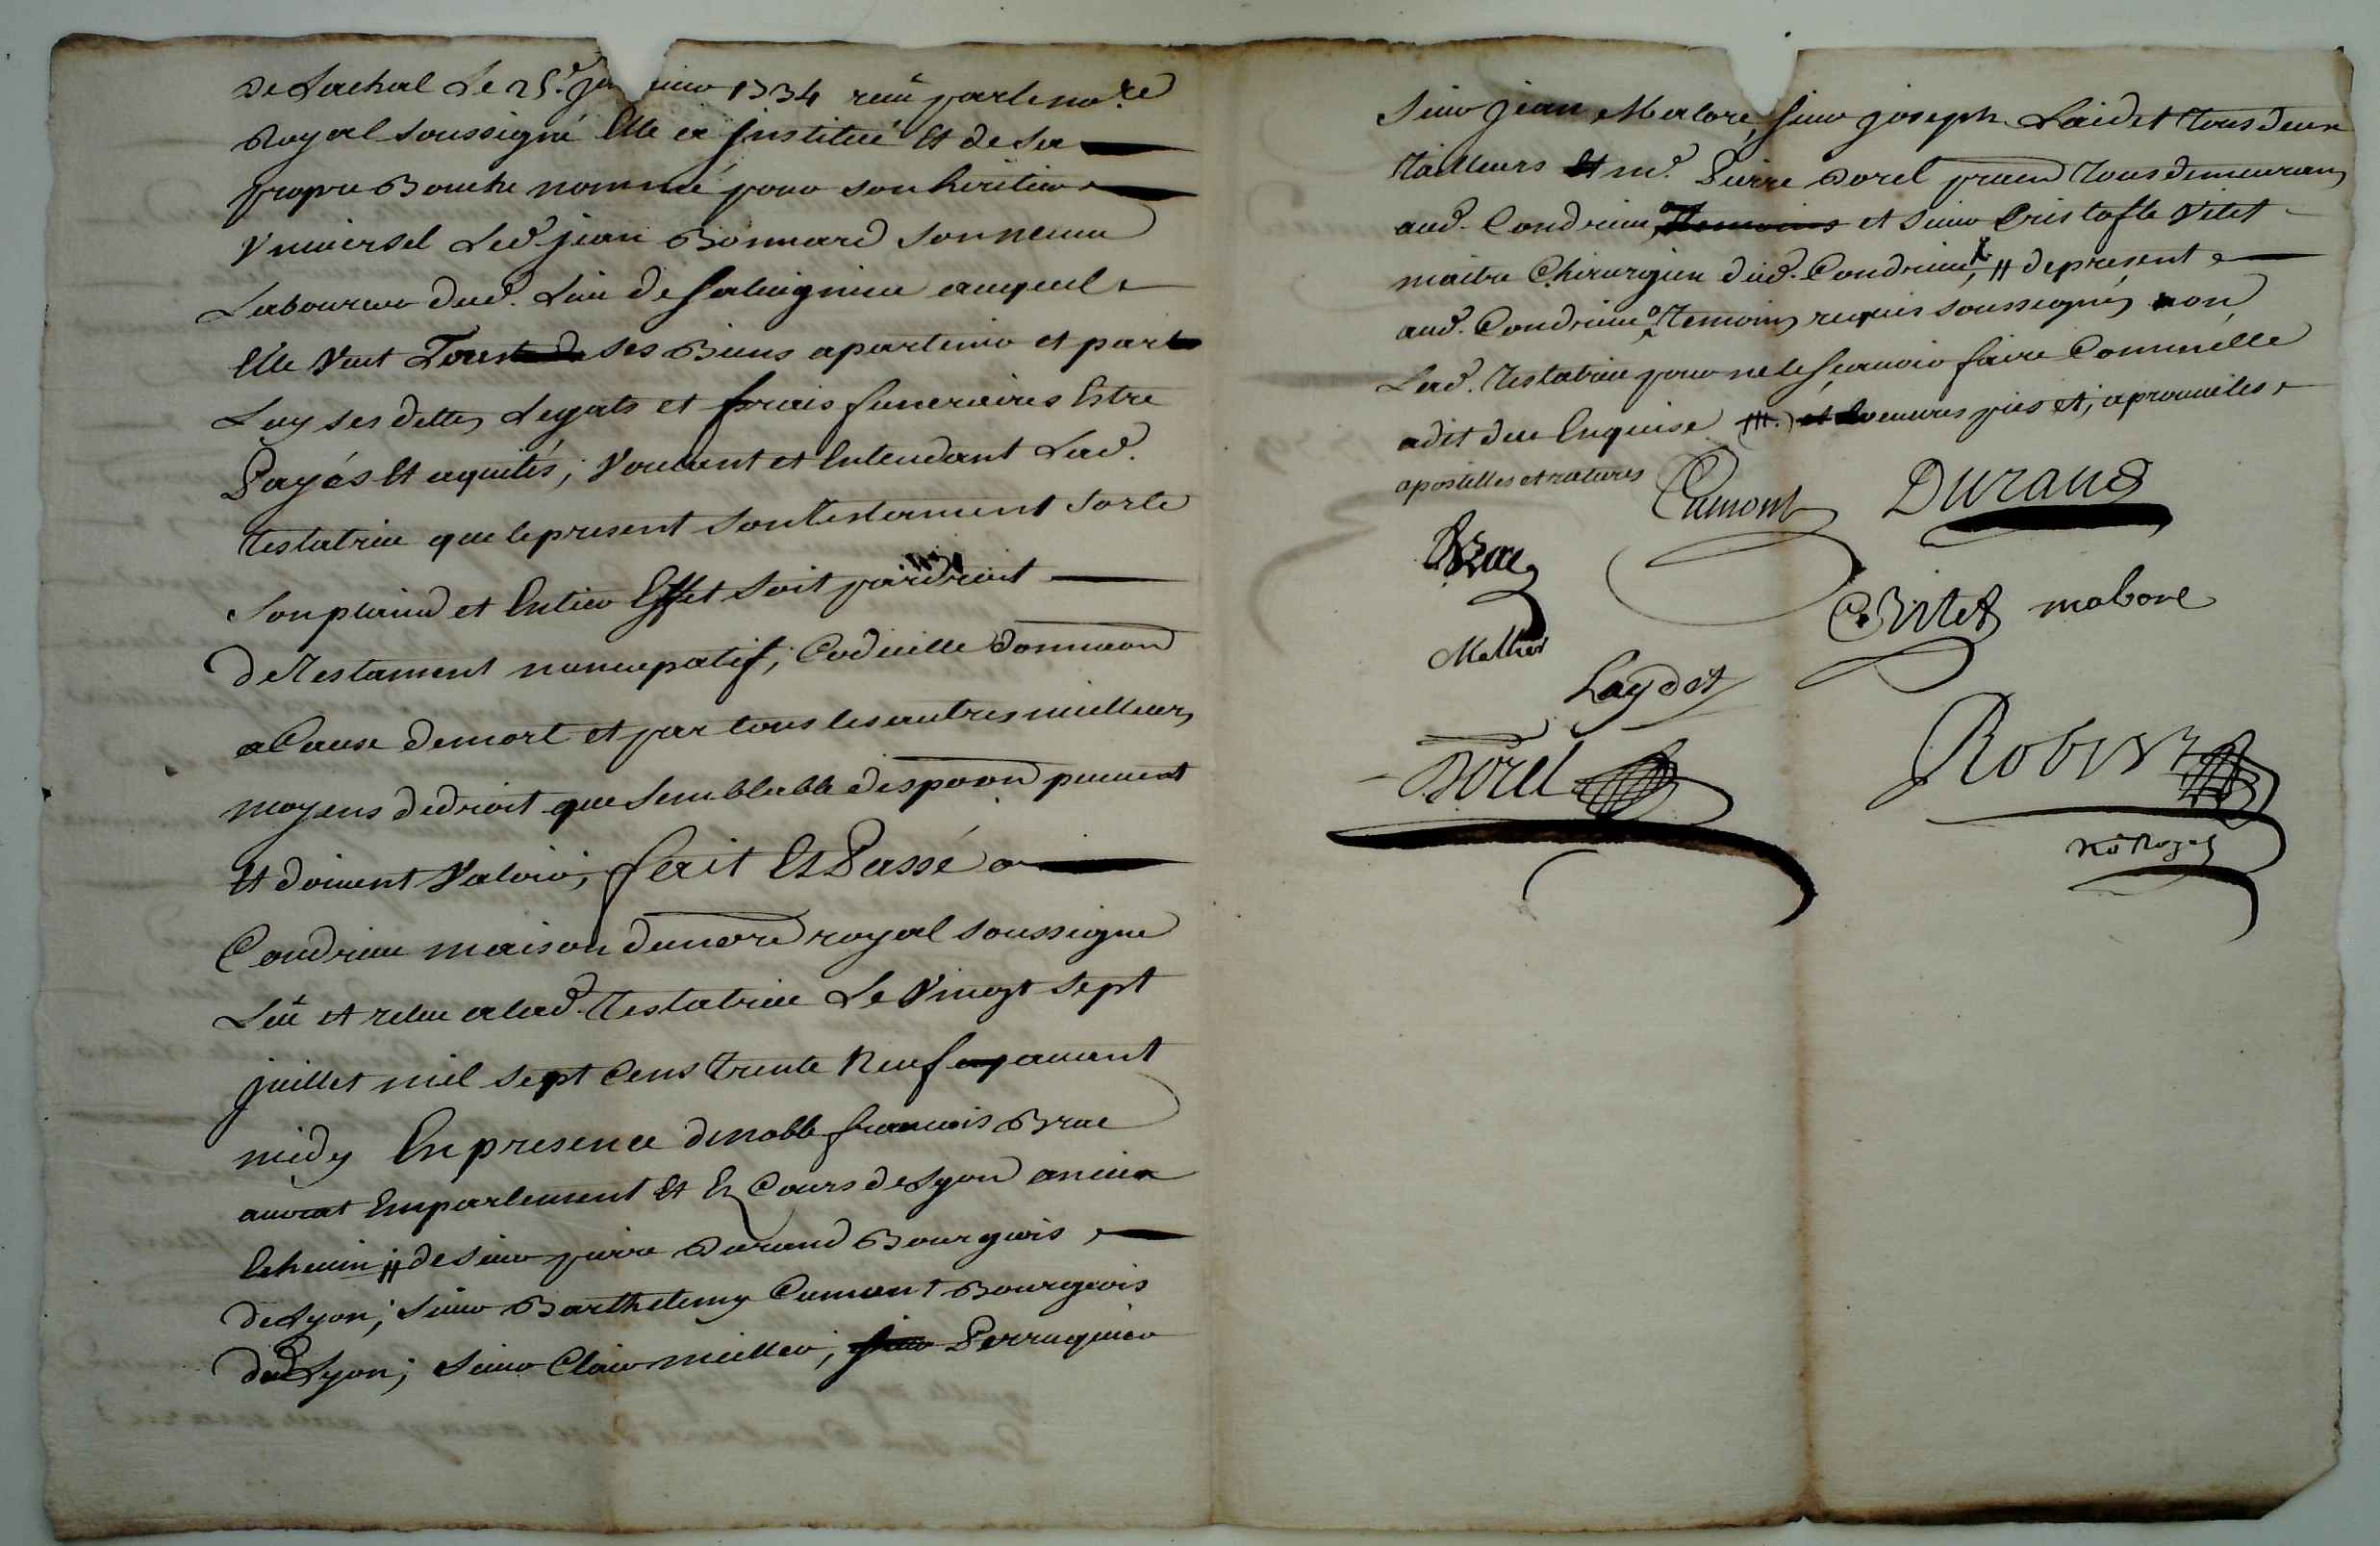 de Lachal Le 25.e ja uier 1734 receu par le no.re
Royal soussigné Elle a Institué Et de sa
propre Bouche nommé pour son heritier
Vniversel Led. jean Bonnard son neveu
Laboureur dud. Lieu de auquel
Elle Veut Tous ses Biens apartenir et par
Luy ses dettes Legats et frais funeraires Estre
Payés Et aquités; Voulant et Entendant Lad.
testatrice que le present son testament sorte
son plaind et Entier Effet soit par droit
de testament noncupatif; Codicille donnaon
a Cause de mort et par tous les autres meilleurs
moyens de droit que semblable dispoon peuvent
Et doivent Valoir; fait Et Passé a
Condrieu maison du nore royal soussigne
Leu et releu a lad. testatrice Le Vingt sept
juillet mil sept Cens trente Neuf avant
midy En presence de noble francois Brac
avocat En parlement Et Es Cours de Lyon ancien
Echevin de sieur pierre Durand Bourgeois
de Lyon; sieur Barthelemy Cumont Bourgeois
dud Lyon; sieur Clair meillier; Perruquier
sieur jean Malore, sieur joseph Laidet tous deux
tailleurs Et m.e Pierre Dorel praen tous demeurans
aud. Condrieu, et sieur Cristofle Vitet
maitre Chirurgien dud. Condrieu, de present
aud. Condrieu temoins requis soussignés non
Lad. testatrice pour ne le sçavoir faire Comme Elle
a dit de ce Enquise et aprouvé les
apostilles et ratures
Cumont Durand
Brac
C Vitet malore
Mellier
Laydet
Dorel
Robin
No Royal